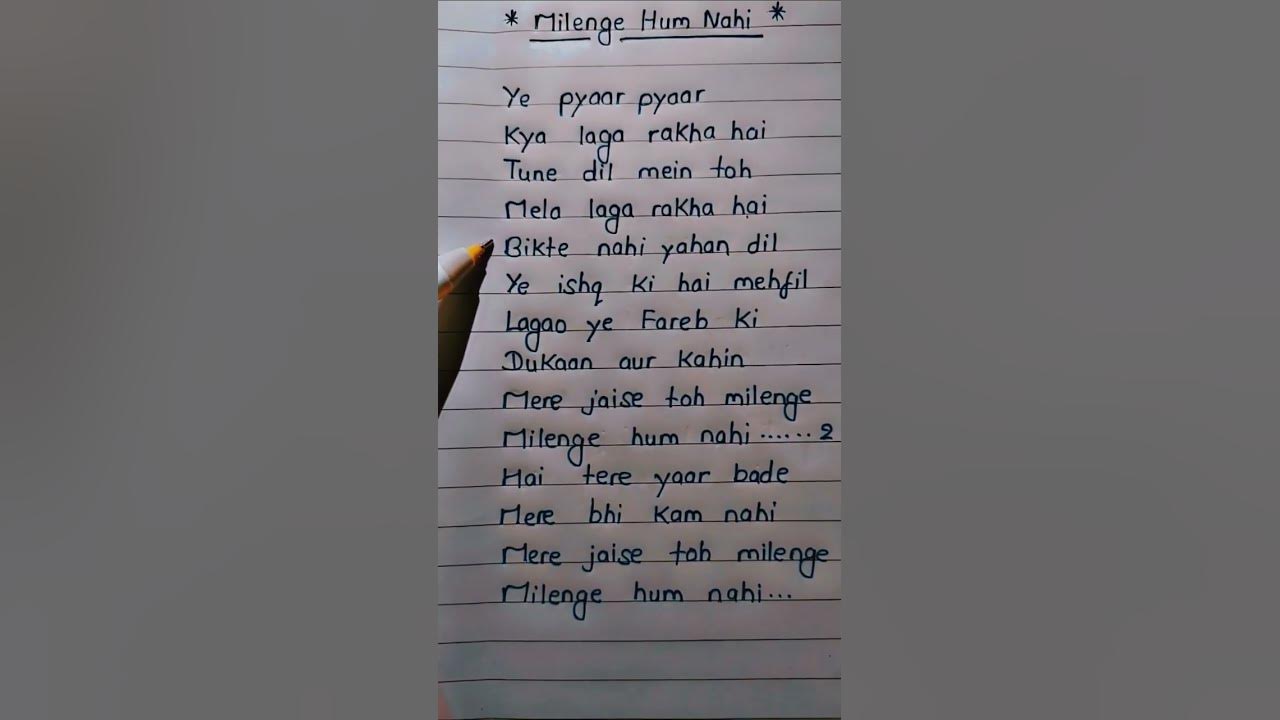 * Milenge Hum Nahi *
Ye pyaar pyaar
Kya laga rakha hai
Tune dil mein toh
Mela laga rakha hai
Bikte nahi yahan dil
Ye ishq ki hai mehfil
Lagao ye Fareb ki
Dukaan aur kahin
Mere jaise toh milenge
Milenge hum nahi ...... 2
Hai tere yaar bade
Mere bhi kam nahi
Mere jaise toh milenge
Milenge hum nahi ...